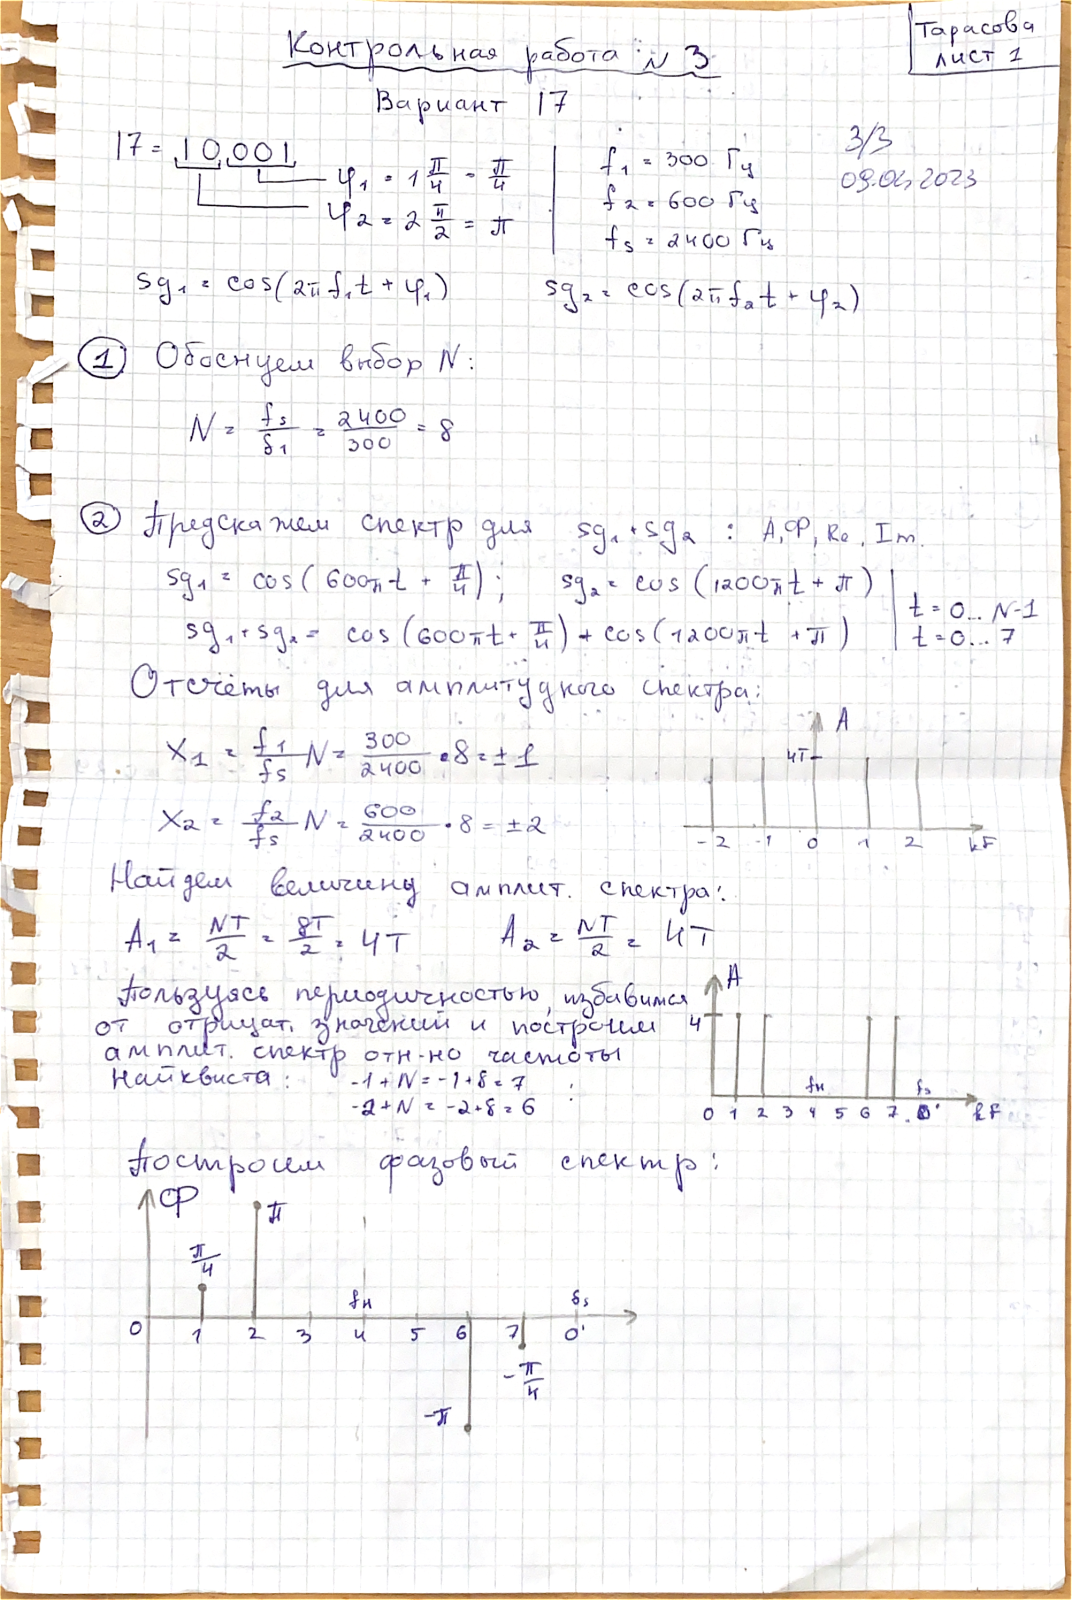 Тарасова
лист 1
Контрольная работа №3
Вариант 17
17 = 10001
φ1 = 1 π/4 = π/4
φ2 = 2 π/2 = π
f1 = 300 Гц
f2 = 600 Гц
fs = 2400 Гц
3/3
sg1 = cos(2πf1t + φ1)
sg2 = cos(2πf2t + φ2)
1 Обоснуем выбор N:
N = fs/δ1 = 2400/300 = 8
2 Предскажем спектр для sg1+sg2 : А,Ф, Re, Im.
sg1 = cos(600πt + π/4); sg2 = cos(1200πt + π)
sg1+sg2 = cos(600πt + π/4) + cos(1200πt + π)
t = 0...N-1
t = 0...7
Отсчёты для амплитудного спектра:
X1 = f1/fs N = 300/2400 · 8 = ±1
X2 = f2/fs N = 600/2400 · 8 = ±2
A
4T
-2 -1 0 1 2 kF
Найдем величину амплит. спектра:
A1 = NT/2 = 8T/2 = 4T
A2 = NT/2 = 4T
Пользуясь периодичностью, избавимся
от отрицат. значений и построим
амплит. спектр отн-но частоты
Найквиста: -1+N = -1+8 = 7
-2+N = -2+8 = 6
A
4
fн fs
0 1 2 3 4 5 6 7 0' kF
Построим фазовый спектр:
Ф
π
π/4
fн δs
0 1 2 3 4 5 6 7 0'
-π/4
-π